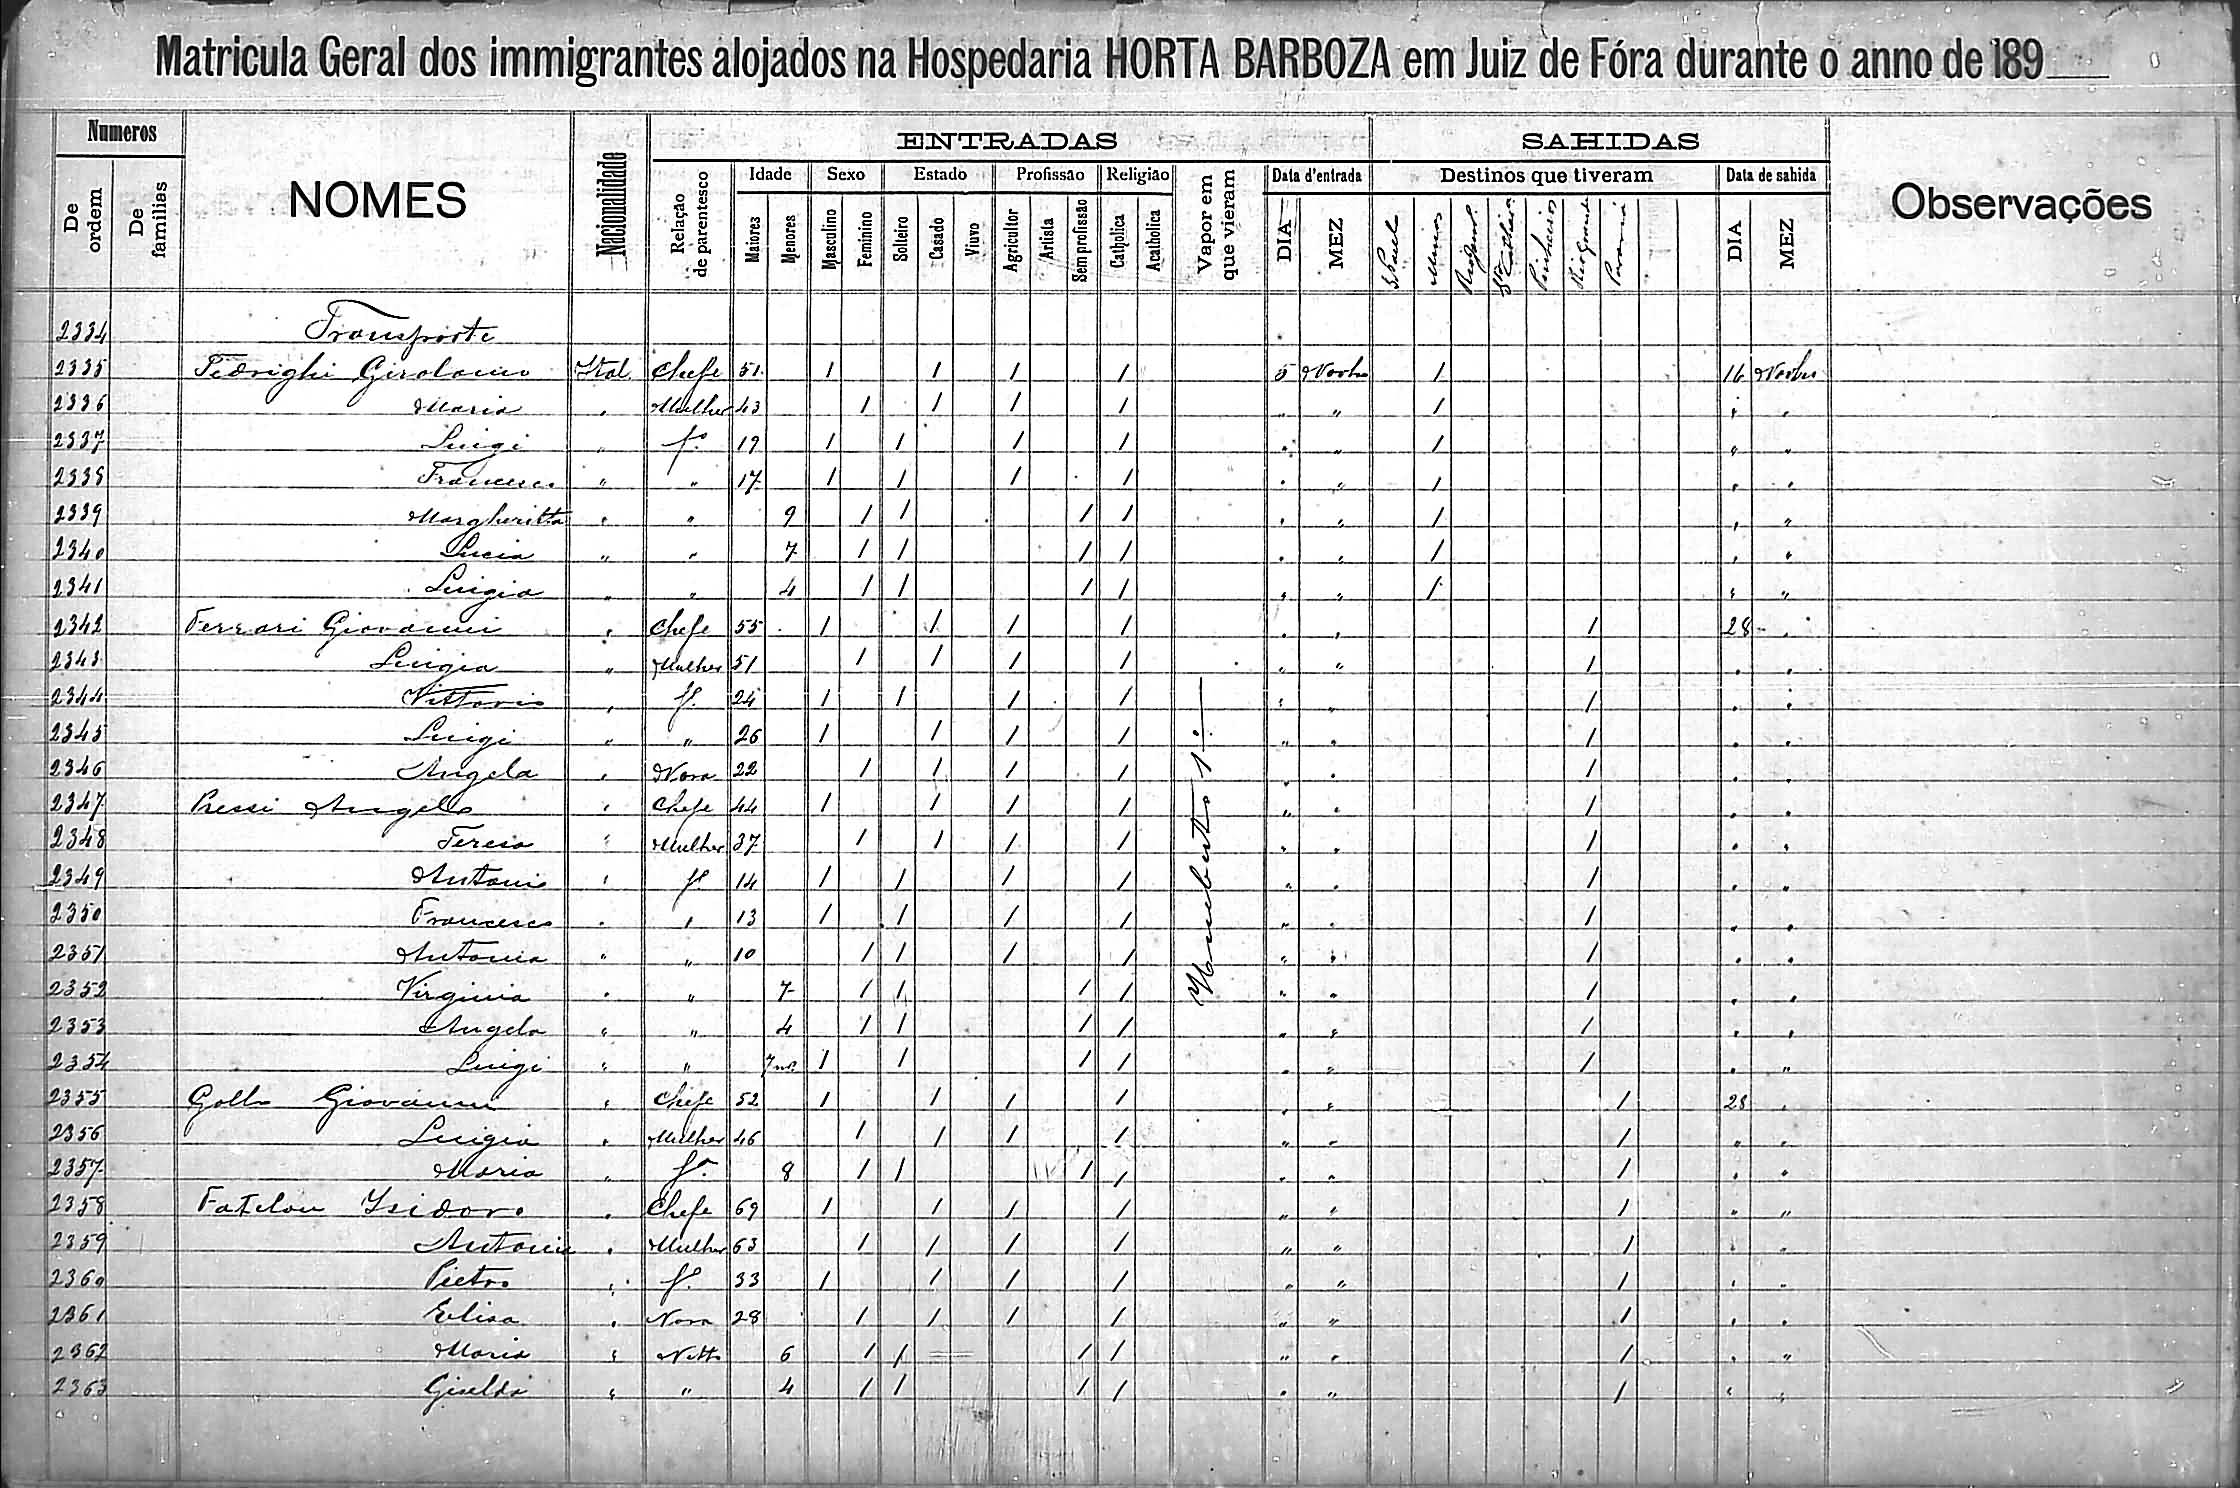 Matricula Geral dos immigrantes alojados na Hospedaria HORTA BARBOZA em Juiz de Fóra durante o anno de 189
Numeros NOMES Nacionalidade ENTRADAS SAHIDAS Observações
De ordem De familias Relação de parentesco Idade Sexo Estado Profissão Religião Vapor em que vieram Data d'entrada Destinos que tiveram Data de sahida
Maiores Menores Masculino Feminino Solteiro Casado Viuvo Agricultor Artista Sem profissão Catholica Acatholica DIA MEZ S Paulo Minas Sta Cathar. Rio Grande Paraná DIA MEZ
2334 Transporte
2335 Girolamo Ital. Chefe 51 1 1 1 1 5 Novbr 1 16 Novbr
2336 Maria " Mulher 43 1 1 1 1 " " 1 " "
2337 Luigi " fo. 19 1 1 1 1 " " 1 " "
2338 Francesco " " 17 1 1 1 1 " " 1 " "
2339 Margheritta " " 9 1 1 1 1 " " 1 " "
2340 Lucia " " 7 1 1 1 1 " " 1 " "
2341 Luigia " " 4 1 1 1 1 " " 1 " "
2342 Ferrari Giovanni " Chefe 55 1 1 1 1 " " 1 28 "
2343 Luigia " Mulher 51 1 1 1 1 " " 1 " "
2344 Vittorio " f. 24 1 1 1 1 " " 1 " "
2345 Luigi " " 26 1 1 1 1 " " 1 " "
2346 Angela " Nora 22 1 1 1 1 " " 1 " "
2347 Pressi Angelo " Chefe 44 1 1 1 1 " " 1 " "
2348 Teresa " Mulher 37 1 1 1 1 " " 1 " "
2349 Antonio " fo 14 1 1 1 1 " " 1 " "
2350 Francesco " " 13 1 1 1 1 " " 1 " "
2351 Antonia " " 10 1 1 1 1 " " 1 " "
2352 Virginia " " 7 1 1 1 1 " " 1 " "
2353 Angela " " 4 1 1 1 1 " " 1 " "
2354 Luigi " " 7 m. 1 1 1 1 " " 1 " "
2355 Gollo Giovanni " Chefe 52 1 1 1 1 " " 1 28 "
2356 Luigia " Mulher 46 1 1 1 1 " " 1 " "
2357 Maria " fa. 8 1 1 1 1 " " 1 " "
2358 Fatelou Isidoro " Chefe 69 1 1 1 1 " " 1 " "
2359 Antonia " Mulher 63 1 1 1 1 " " 1 " "
2360 Pietro " f. 33 1 1 1 1 " " 1 " "
2361 Elisa " Nora 28 1 1 1 1 " " 1 " "
2362 Maria " Netta 6 1 1 1 1 " " 1 " "
2363 Giselda " " 4 1 1 1 1 " " 1 " "
Umberto 1º